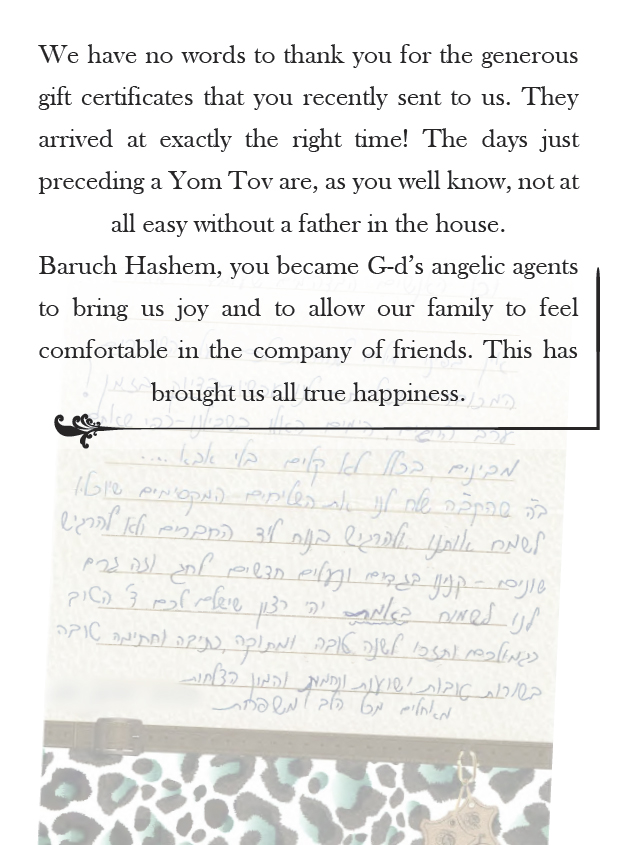 We have no words to thank you for the generous
gift certificates that you recently sent to us. They
arrived at exactly the right time! The days just
preceding a Yom Tov are, as you well know, not at
all easy without a father in the house.
Baruch Hashem, you became G-d’s angelic agents
to bring us joy and to allow our family to feel
comfortable in the company of friends. This has
brought us all true happiness.
מבינים, בכלל לא קלים בלי אבא ....
ב"ה שהקב"ה שלח לנו את השליחים המקסימים שיוכלו
לשמח אותנו ולהרגיש בנוח ליד החברים ולא להרגיש
שונים - קנינו בגדים ונעלים חדשים לחג וזה גרם
לנו לשמוח באמת יהי רצון שישלם לכם ד' הטוב
כגמולכם ותזכו לשנה טובה ומתוקה, כתיבה וחתימה טובה
בשורות טובות ישועות ונחמות והמון הצלחות
מאחלים מכל הלב משפחת